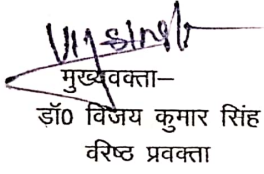 मुख्यवक्ता–
डॉ0 विजय कुमार सिंह
वरिष्ठ प्रवक्ता